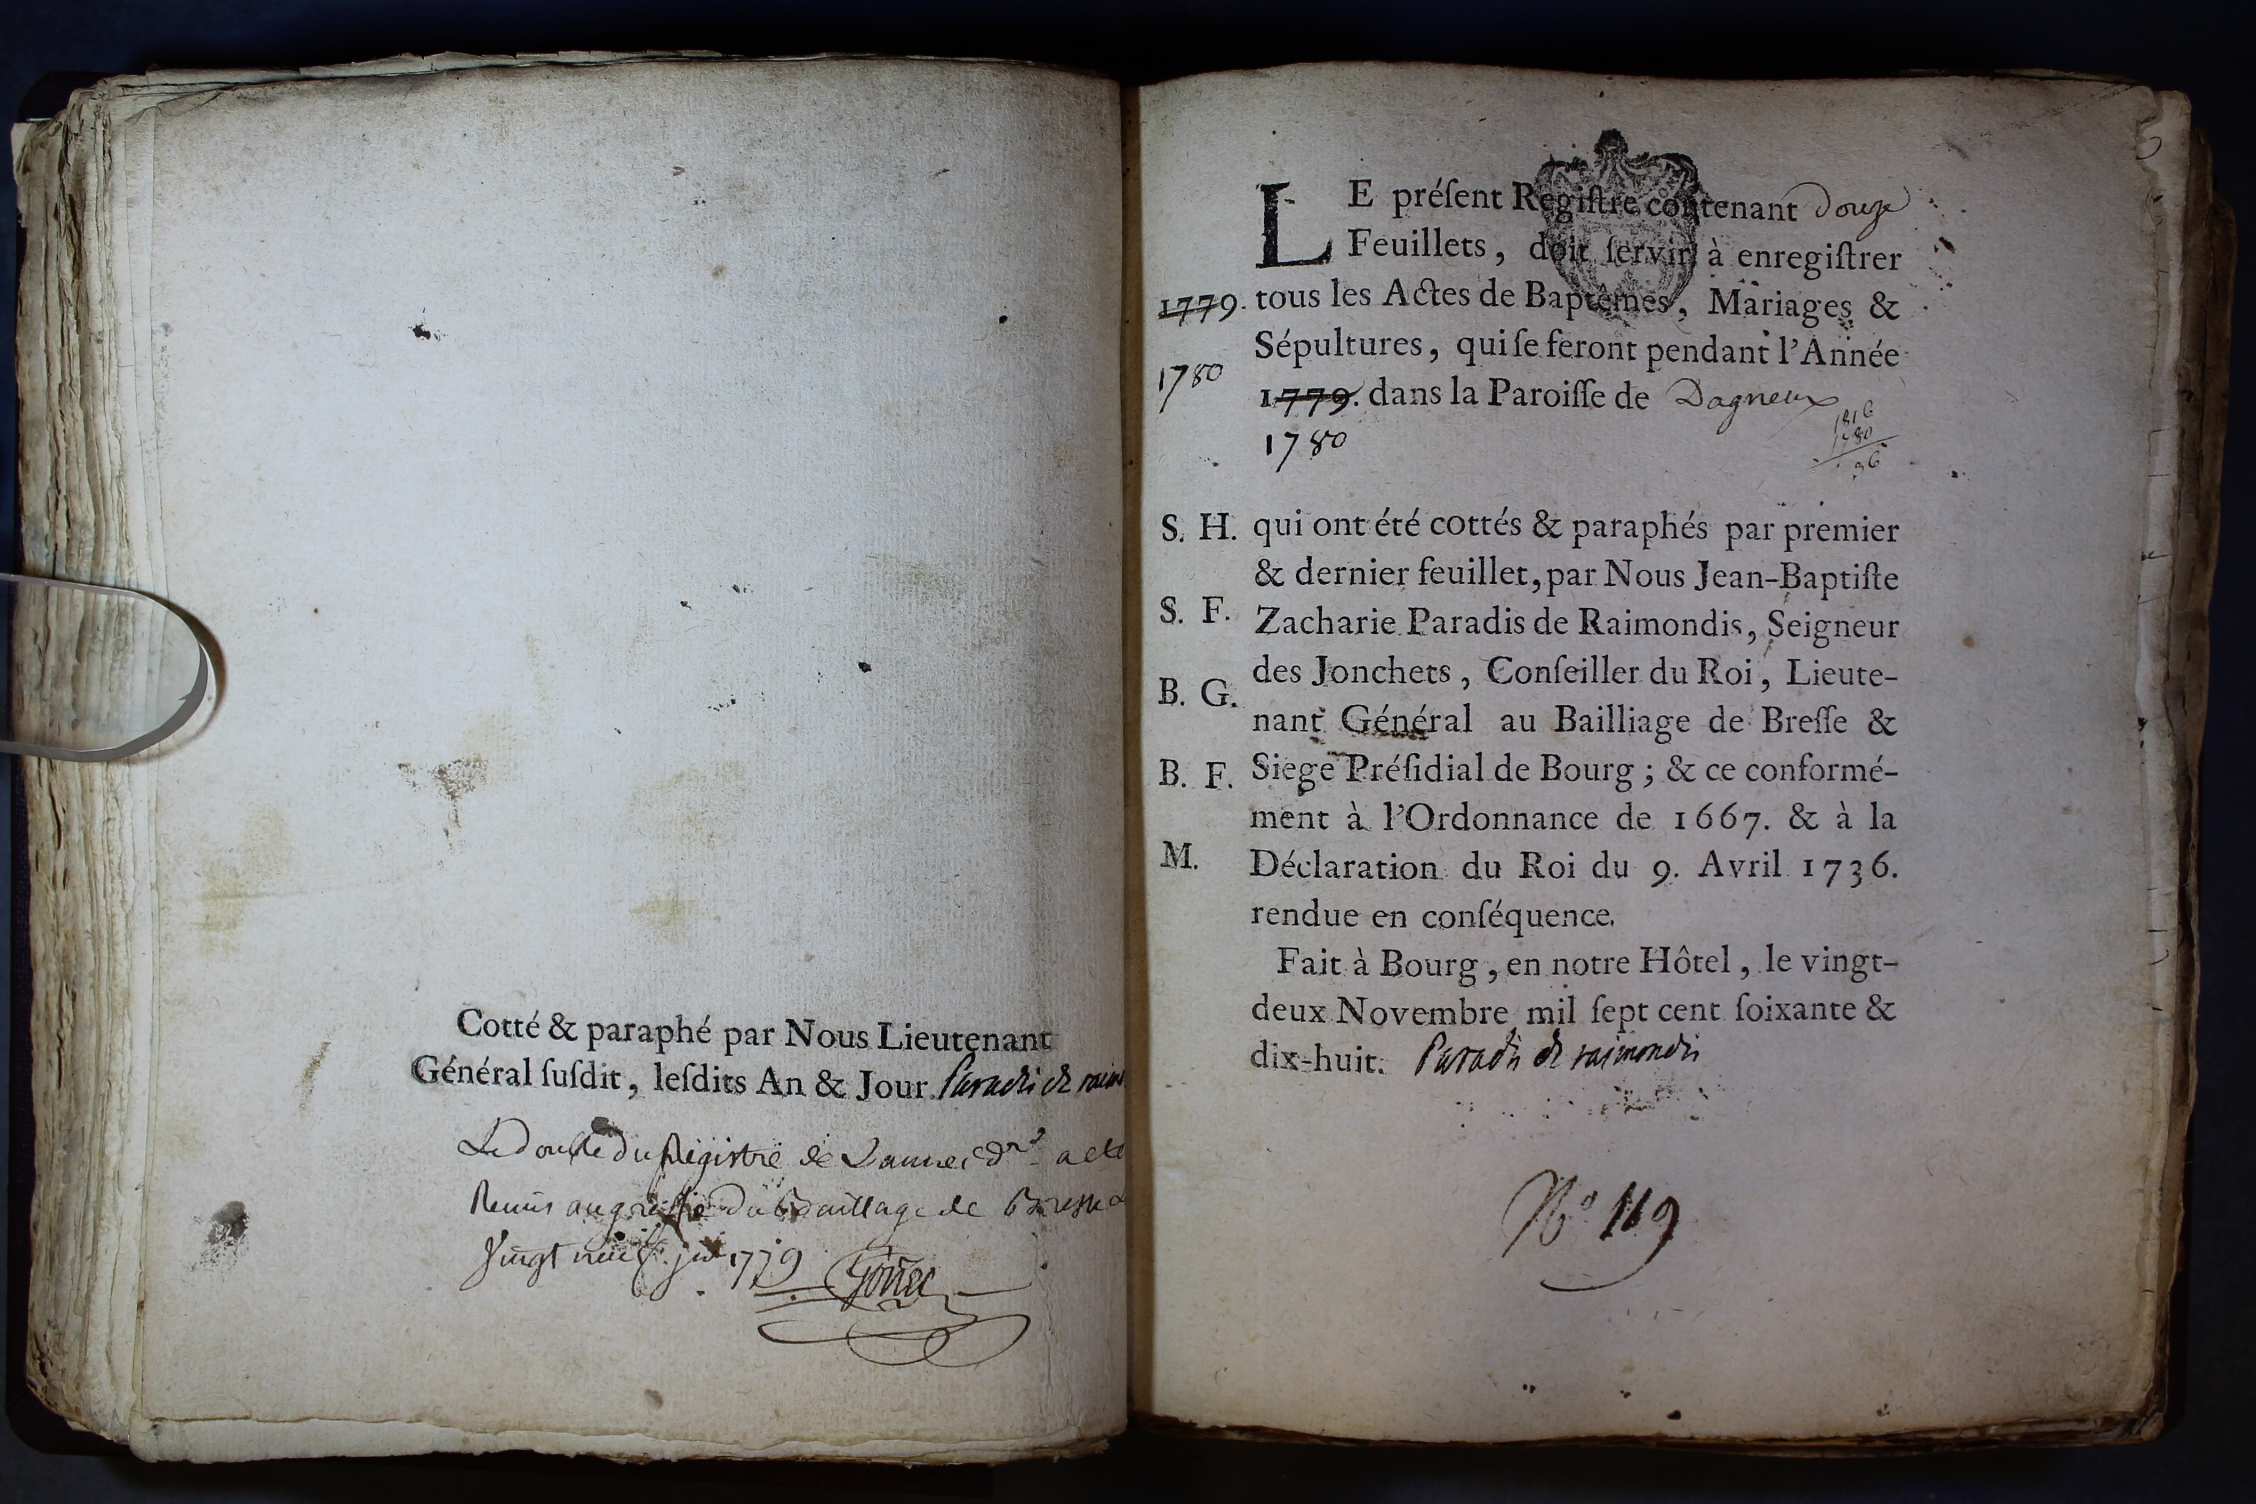 Cotté & paraphé par Nous Lieutenant
Général ſuſdit, leſdits An & Jour. Paradis de raim
Le double du Registre de Lannee dre a ete
Remis au greffe du Bailliage de Bresse
Vingt neuf 1779
LE préſent Regiſtre contenant douze
Feuillets, doit ſervir à enregiſtrer
1779. tous les Actes de Baptêmes, Mariages &
Sépultures, qui ſe feront pendant l'Année
1780
1779. dans la Paroiſſe de Dagneux
1780
1816
1780
36
S. H. qui ont été cottés & paraphés par premier
& dernier feuillet, par Nous Jean-Baptiſte
S. F. Zacharie Paradis de Raimondis, Seigneur
des Jonchets, Conſeiller du Roi, Lieute-
B. G. nant Général au Bailliage de Breſſe &
B. F. Siege Préſidial de Bourg; & ce conformé-
ment à l'Ordonnance de 1667. & à la
M. Déclaration du Roi du 9. Avril 1736.
rendue en conſéquence.
Fait à Bourg, en notre Hôtel, le vingt-
deux Novembre mil ſept cent ſoixante &
dix-huit. Paradis de raimondis
No 119